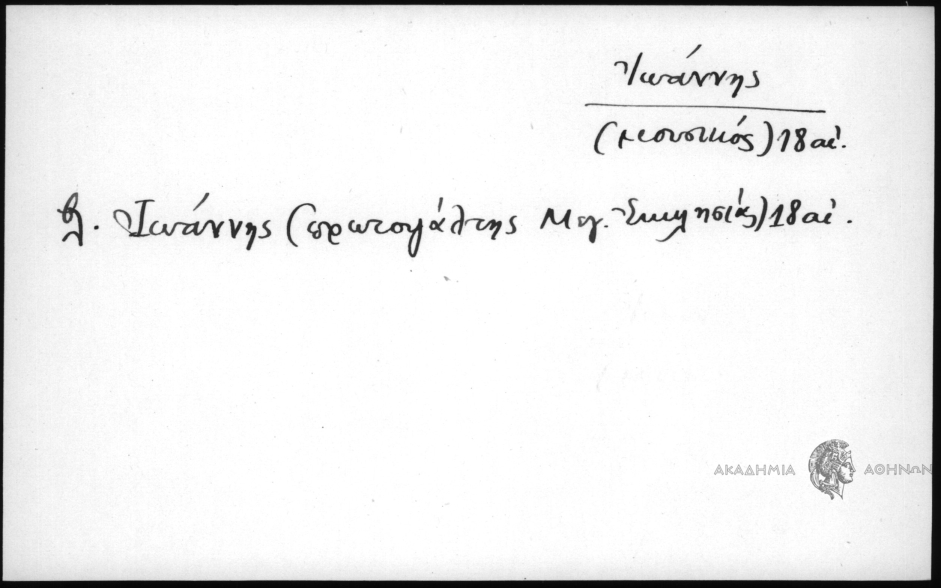 Ἰωάννης
(μουσικός) 18 αἰ.
βλ. Ἰωάννης (πρωτοψάλτης Μεγ. Ἐκκλησίας) 18 αἰ.
ΑΚΑΔΗΜΙΑ ΑΘΗΝΩΝ